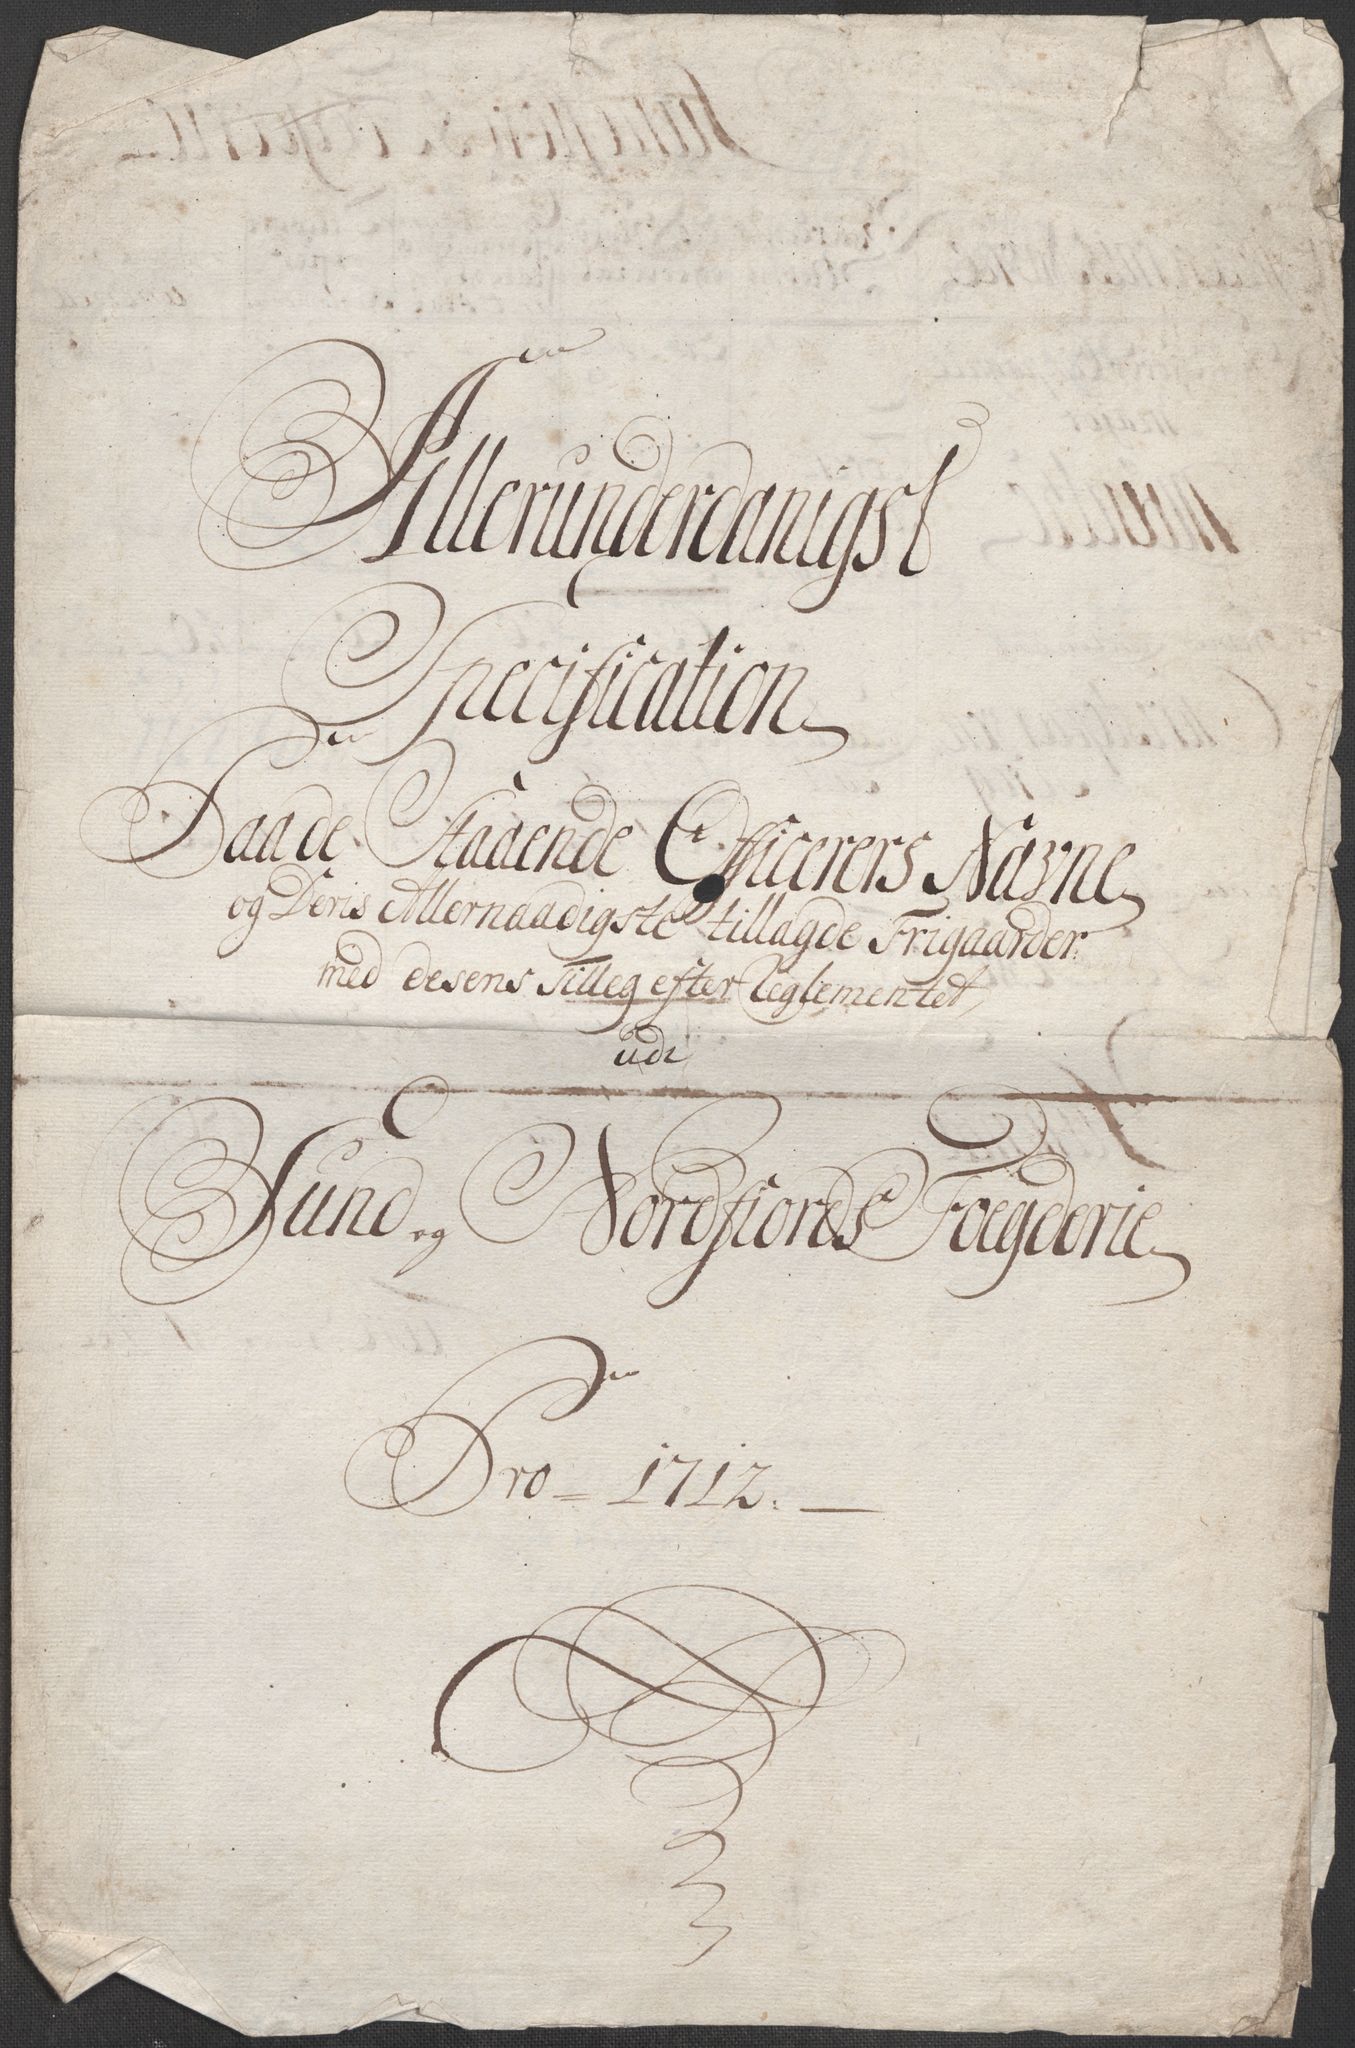 Allerunderdanigst
Specification
Paa de Staaende Officerers Nafne
og Deris Allernaadigste tillagde Frigaarder
med desens Tilleg efter Reglementet,
udi
Sund og Nordfiords Foegderie
Pro = 1712. —